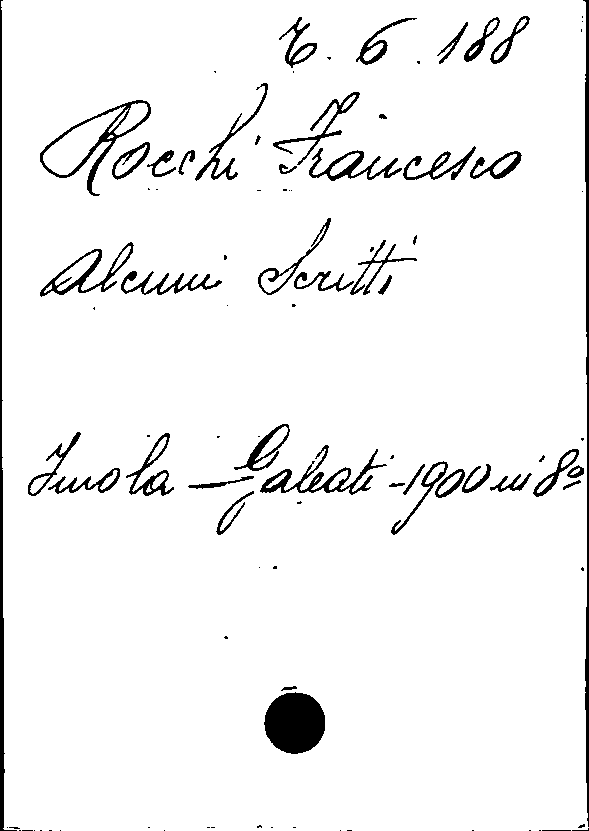 6. 6. 188
Rocchi Francesco
Alcuni Scritti
Imola - Galeati - 1900 in 8º